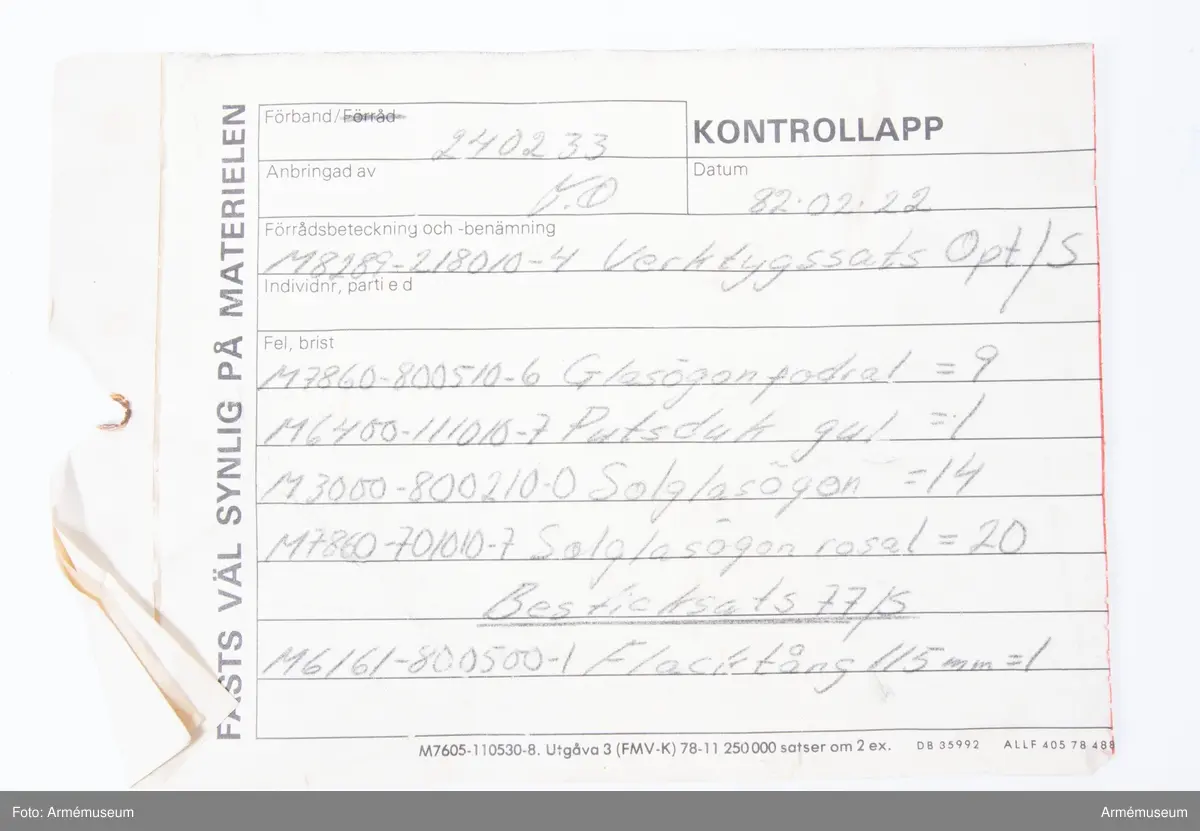 FÄSTS VÄL SYNLIG PÅ MATERIELEN
Förband/Förråd
240233
KONTROLLAPP
Anbringad av
Y.O
Datum
82.02.22
Förrådsbeteckning och -benämning
M8289-218010-4 Verktygssats Opt/S
Individnr, parti e d
Fel, brist
M7860-800510-6 Glasögonfodral = 9
M6400-111010-7 Putsduk gul =1
M3000-800210-0 Solglasögon =14
M7860-701010-7 Solglasögon rosal = 20
Besticksats 77/S
M6161-800500-1 Flacktång 115 mm =1
M7605-110530-8. Utgåva 3 (FMV-K) 78-11 250 000 satser om 2 ex. DB 35992 ALLF 405 78 488
Foto: Armémuseum
Armémuseum